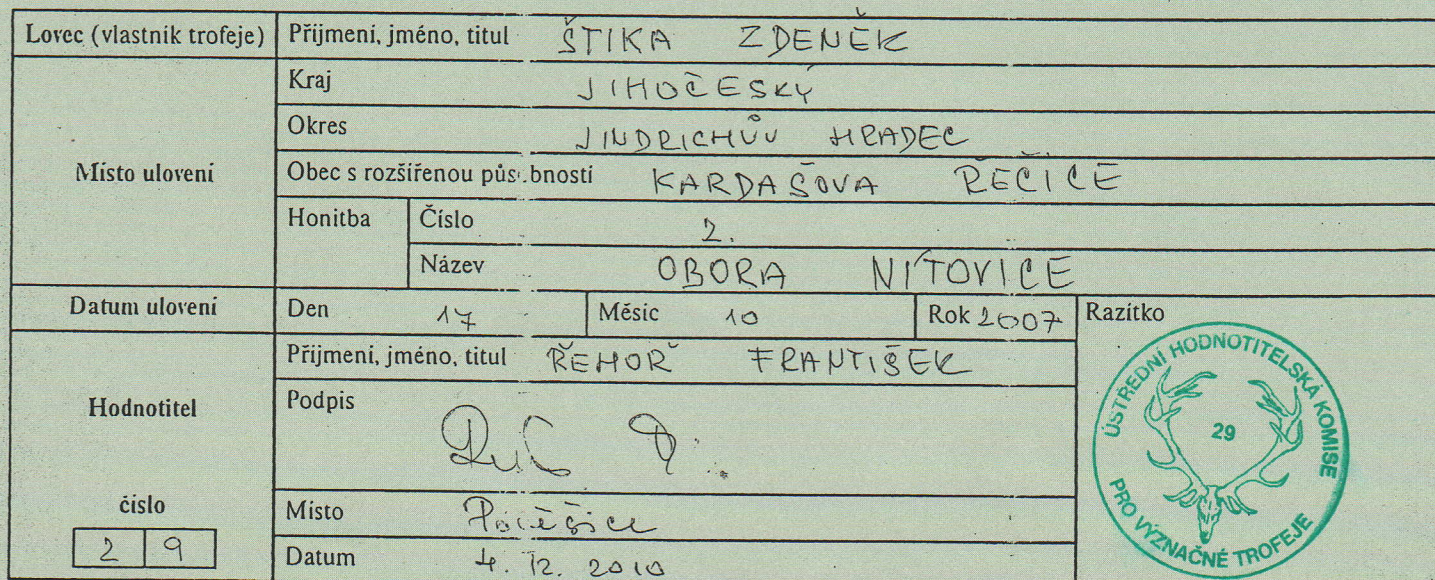 Lovec (vlastník trofeje) Přijmeni, jméno, titul ŠTIKA ZDENĚK
Místo ulovení
Kraj JIHOČESKÝ
Okres JINDRICHŮV HRADEC
Obec s rozšířenou půs bnosti KARDAŠOVA ŘEČICE
Honitba Číslo 2.
Název OBORA NÍTOVICE
Datum ulovení Den 17 Měsíc 10 Rok 2007 Razítko
Hodnotitel
Přijmeni, jméno, titul ŘEHOŘ FRANTIŠEK
Podpis
číslo
2 9
Místo
Datum 4. 12. 2010
ÚSTŘEDNÍ HODNOTITELSKÁ KOMISE
29
PRO VÝZNAČNÉ TROFEJE